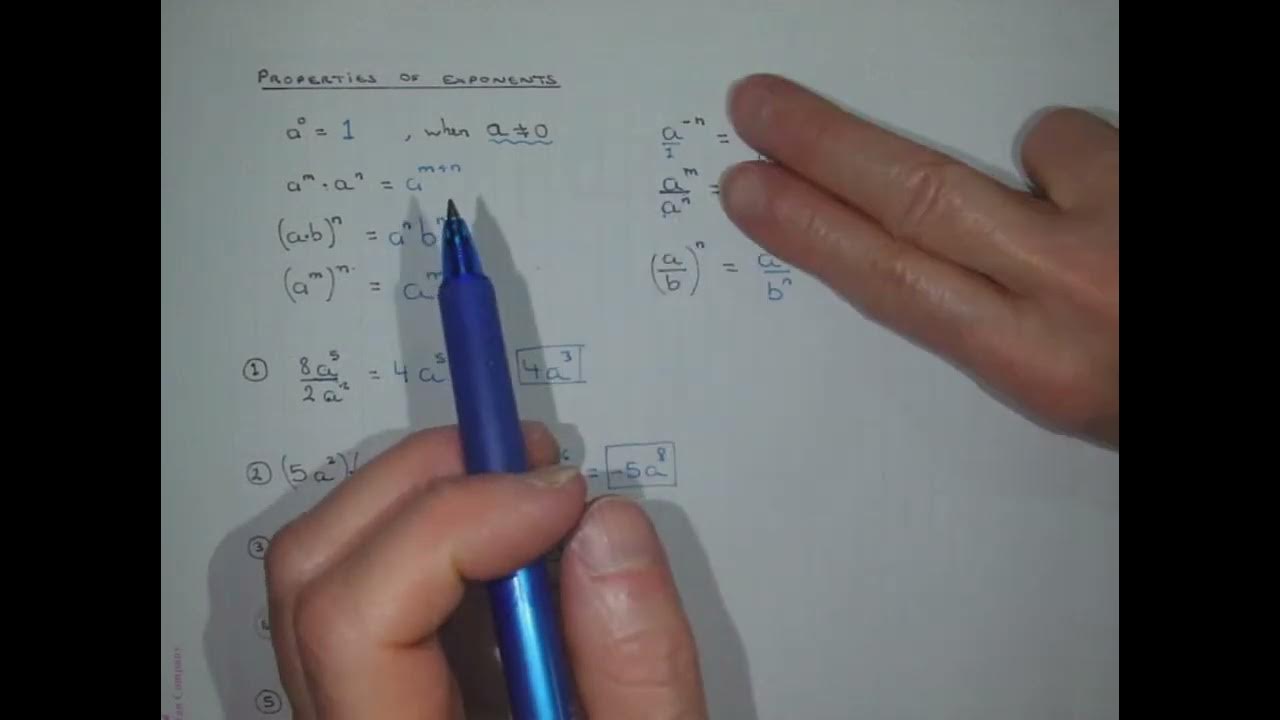 PROPERTIES OF EXPONENTS
a⁰ = 1 , when a ≠ 0
aᵐ · aⁿ = aᵐ⁺ⁿ
(a·b)ⁿ = aⁿ bⁿ
(aᵐ)ⁿ = aᵐ
a⁻ⁿ/1 =
aᵐ/aⁿ =
(a/b)ⁿ = a/bⁿ
① 8a⁵/2a² = 4a⁵ 4a³
② (5a²)·( ⁶ = -5a⁸
③
⑤